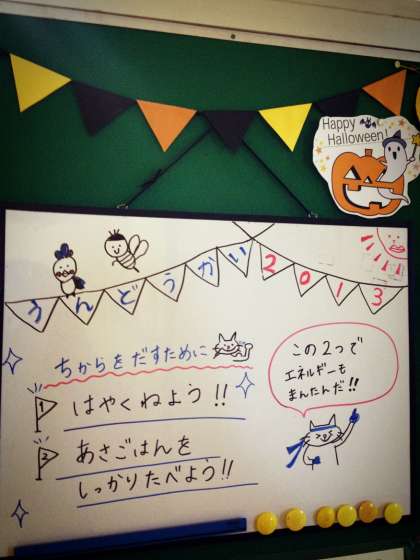 Happy
Halloween!
うんどうかい2013
ちからをだすために
1 はやくねよう!!
2 あさごはんを
しっかりたべよう!!
この2つで
エネルギーも
まんたんだ!!